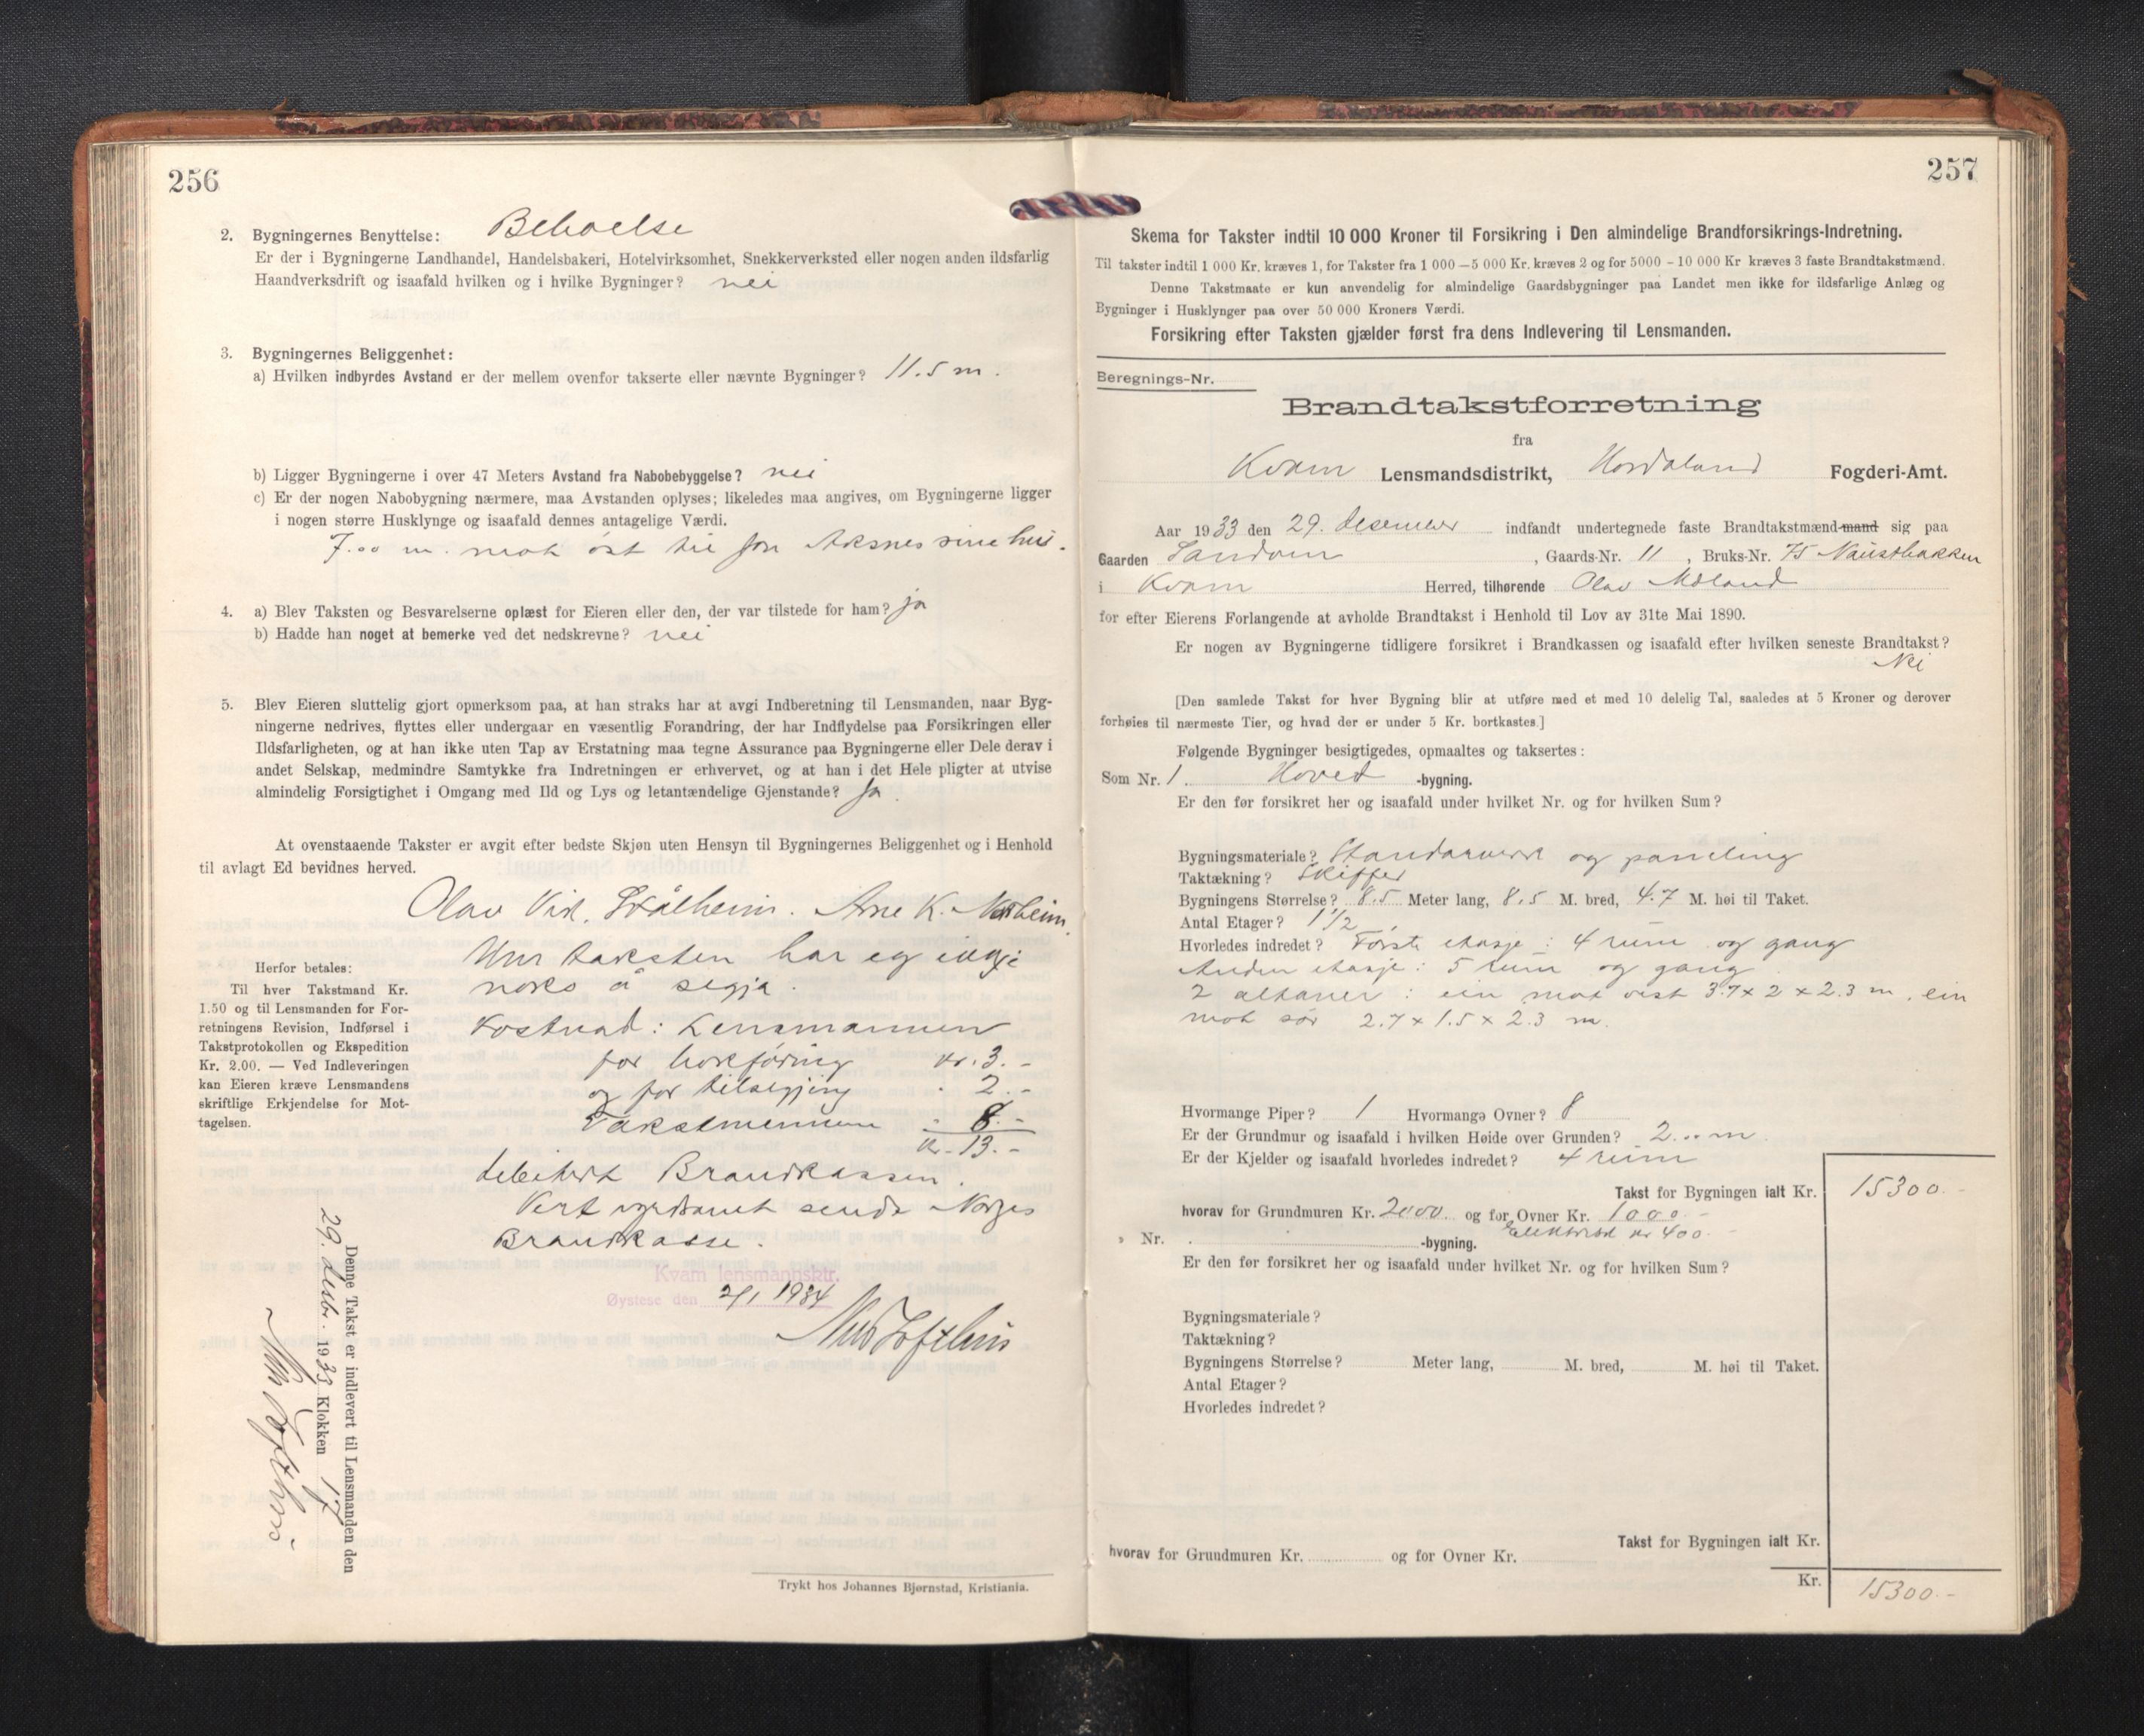 256
2. Bygningernes Benyttelse: Beboelse
Er der i Bygningerne Landhandel, Handelsbakeri, Hotelvirksomhet, Snekkerverksted eller nogen anden ildsfarlig
Haandverksdrift og isaafald hvilken og i hvilke Bygninger? nei
3. Bygningernes Beliggenhet:
a) Hvilken indbyrdes Avstand er der mellem ovenfor takserte eller nævnte Bygninger? 11.5 m.
b) Ligger Bygningerne i over 47 Meters Avstand fra Nabobebyggelse? nei
c) Er der nogen Nabobygning nærmere, maa Avstanden oplyses; likeledes maa angives, om Bygningerne ligger
i nogen større Husklynge og isaafald dennes antagelige Værdi.
7.00 m. mot öst til Jon Aksnes sine hus.
4. a) Blev Taksten og Besvarelserne oplæst for Eieren eller den, der var tilstede for ham? ja
b) Hadde han noget at bemerke ved det nedskrevne? nei
5. Blev Eieren sluttelig gjort opmerksom paa, at han straks har at avgi Indberetning til Lensmanden, naar Byg-
ningerne nedrives, flyttes eller undergaar en væsentlig Forandring, der har Indflydelse paa Forsikringen eller
Ildsfarligheten, og at han ikke uten Tap av Erstatning maa tegne Assurance paa Bygningerne eller Dele derav i
andet Selskap, medmindre Samtykke fra Indretningen er erhvervet, og at han i det Hele pligter at utvise
almindelig Forsigtighet i Omgang med Ild og Lys og letantændelige Gjenstande? Ja
At ovenstaaende Takster er avgit efter bedste Skjøn uten Hensyn til Bygningernes Beliggenhet og i Henhold
til avlagt Ed bevidnes herved.
Olav Vik. Stålheim. Arne K. Norheim.
Um taksten har eg inkje
noko å segja.
Kostnad: Lensmannen
for bokföring kr. 3.-
og for tilsegjing " 2.-
Takstmennene " 8.-
kr. 13.-
debitert Brandkassen.
Vert vyrdsamt sendt Norges
Brandkasse.
Kvam lensmannsktr.
Øystese den 2/1 1934
Nils Tofthus
Herfor betales:
Til hver Takstmand Kr.
1.50 og til Lensmanden for For-
retningens Revision, Indførsel i
Takstprotokollen og Ekspedition
Kr. 2.00. — Ved Indleveringen
kan Eieren kræve Lensmandens
skriftlige Erkjendelse for Mot-
tagelsen.
Denne Takst er indlevert til Lensmanden den
29. desbr. 1933 Klokken 17
Nils Tofthus
Trykt hos Johannes Bjørnstad, Kristiania.
257
Skema for Takster indtil 10 000 Kroner til Forsikring i Den almindelige Brandforsikrings-Indretning.
Til takster indtil 1 000 Kr. kræves 1, for Takster fra 1 000 — 5 000 Kr. kræves 2 og for 5000 - 10 000 Kr kræves 3 faste Brandtakstmænd.
Denne Takstmaate er kun anvendelig for almindelige Gaardsbygninger paa Landet men ikke for ildsfarlige Anlæg og
Bygninger i Husklynger paa over 50 000 Kroners Værdi.
Forsikring efter Taksten gjælder først fra dens Indlevering til Lensmanden.
Beregnings-Nr.
Brandtakstforretning
fra
Kvam Lensmandsdistrikt, Hordaland Fogderi-Amt.
Aar 1933 den 29. desember indfandt undertegnede faste Brandtakstmænd-mand sig paa
Gaarden Sandven, Gaards-Nr. 11, Bruks-Nr. 75 Naustbakken
i Kvam Herred, tilhørende Olav Möland
for efter Eierens Forlangende at avholde Brandtakst i Henhold til Lov av 31te Mai 1890.
Er nogen av Bygningerne tidligere forsikret i Brandkassen og isaafald efter hvilken seneste Brandtakst?
Nei
[Den samlede Takst for hver Bygning blir at utføre med et med 10 delelig Tal, saaledes at 5 Kroner og derover
forhøies til nærmeste Tier, og hvad der er under 5 Kr. bortkastes.]
Følgende Bygninger besigtigedes, opmaaltes og taksertes:
Som Nr. 1. Hoved -bygning.
Er den før forsikret her og isaafald under hvilket Nr. og for hvilken Sum?
Bygningsmateriale? Standarverk og paneling
Taktækning? Skiffer
Bygningens Størrelse? 8.5 Meter lang, 8.5 M. bred, 4.7 M. høi til Taket.
Antal Etager? 1 1/2
Hvorledes indredet? Förste etasje: 4 rum og gang
Anden etasje: 5 rum og gang
2 altaner: ein mot vest 3.7 x 2 x 2.3 m, ein
mot sör 2.7 x 1.5 x 2.3 m.
Hvormange Piper? 1 Hvormange Ovner? 8
Er der Grundmur og isaafald i hvilken Høide over Grunden? 2.00 m
Er der Kjelder og isaafald hvorledes indredet? 4 rum
Takst for Bygningen ialt Kr. 15300.-
hvorav for Grundmuren Kr. 2000. og for Ovner Kr. 1000.-
Elektrisk kr 400.-
» Nr. -bygning.
Er den før forsikret her og isaafald under hvilket Nr. og for hvilken Sum?
Bygningsmateriale?
Taktækning?
Bygningens Størrelse? Meter lang, M. bred, M. høi til Taket.
Antal Etager?
Hvorledes indredet?
Takst for Bygningen ialt Kr.
hvorav for Grundmuren Kr. og for Ovner Kr.
Kr. 15300.-